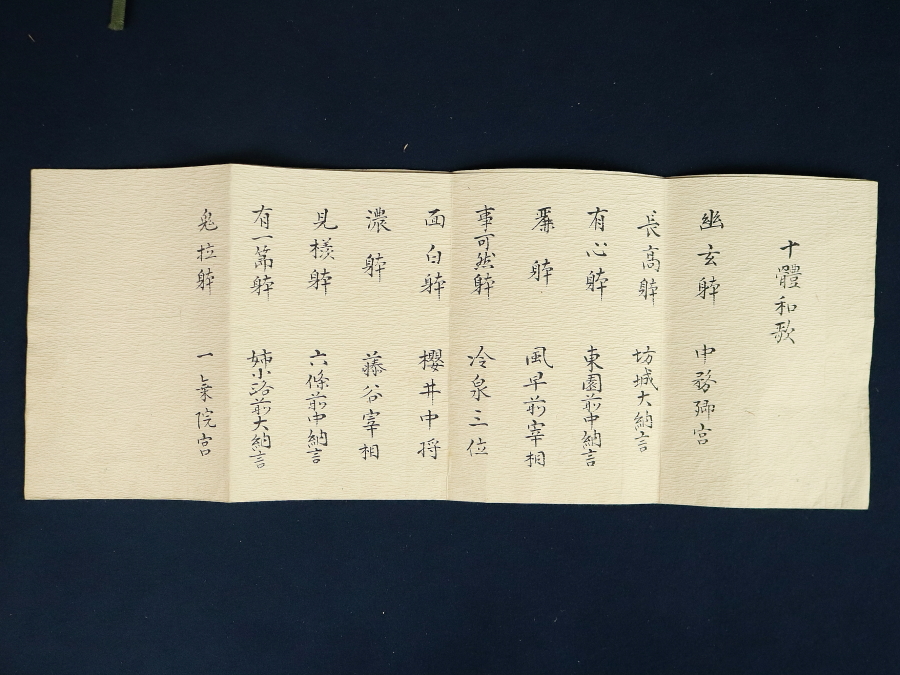 十體和歌
幽玄躰 中務卿宮
長高躰 坊城大納言
有心躰 東園前中納言
麗躰 風早前宰相
事可然躰 冷泉三位
面白躰 櫻井中将
濃躰 藤谷宰相
見様躰 六條前中納言
有一節躰 姉小路前大納言
鬼拉躰 一乗院宮